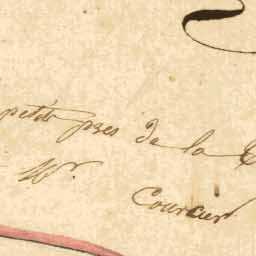 petit pres de la
Mr. Courcier